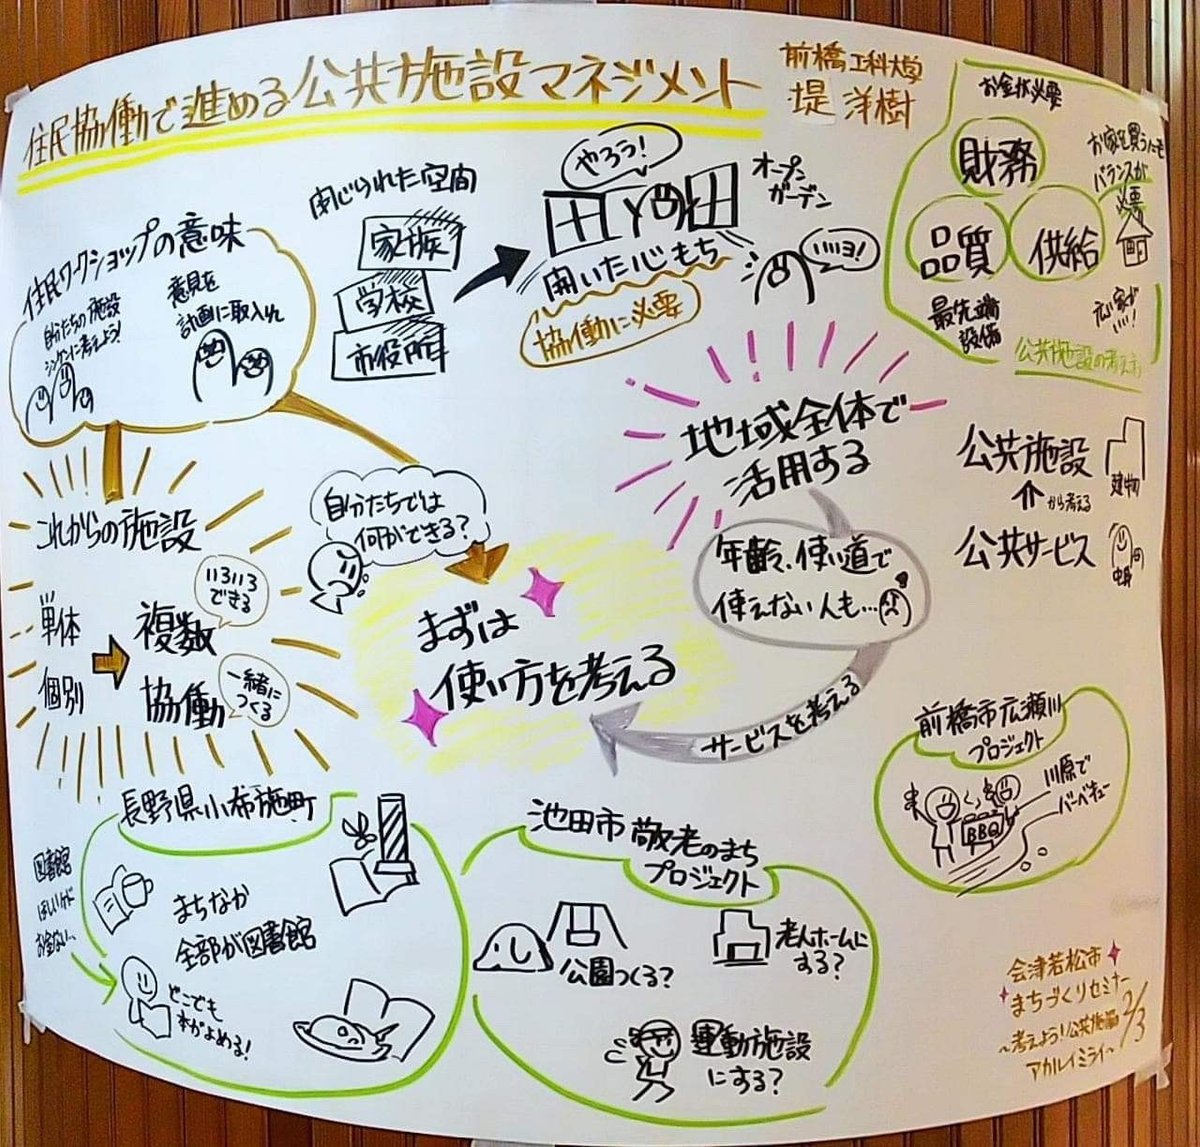 住民協働で進める公共施設マネジメント
前橋工科大学
堤 洋樹
お金が必要
財務
品質
供給
お家を買うにも
バランスが
必要
最先端
設備
広い家が
いい!
公共施設の考え方
住民ワークショップの意味
自分たちの施設
シンケンに考えよう!
意見を
計画に取入れ
閉じられた空間
家族
学校
市役所
やろう!
オープン
ガーデン
開いた心もち
協働に必要
いいヨ!
地域全体で
活用する
年齢、使い道で
使えない人も…
サービスを考える
公共施設
建物
から考える
公共サービス
中身
これからの施設
単体
個別
複数
協働
いろいろ
できる
一緒に
つくる
自分たちでは
何ができる?
まずは
使い方を考える
長野県小布施町
図書館
ほしいけど
お金ない…
まちなか
全部が図書館
どこでも
本がよめる!
池田市 敬老のまち
プロジェクト
公園つくる?
老人ホームに
する?
運動施設
にする?
前橋市広瀬川
プロジェクト
川原で
バーベキュー
BBQ
会津若松市
まちづくりセミナー
2/3
~考えよう!公共施設
アカルイミライ~